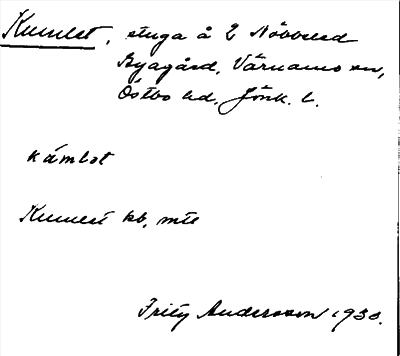 Kumlet, stuga å 2 Nöbbeled
Byagård, Värnamo sn,
Östbo hd, Jönk. l.
kåmlət
Kumlet kb, mtl
Fritz Andersson 1933.